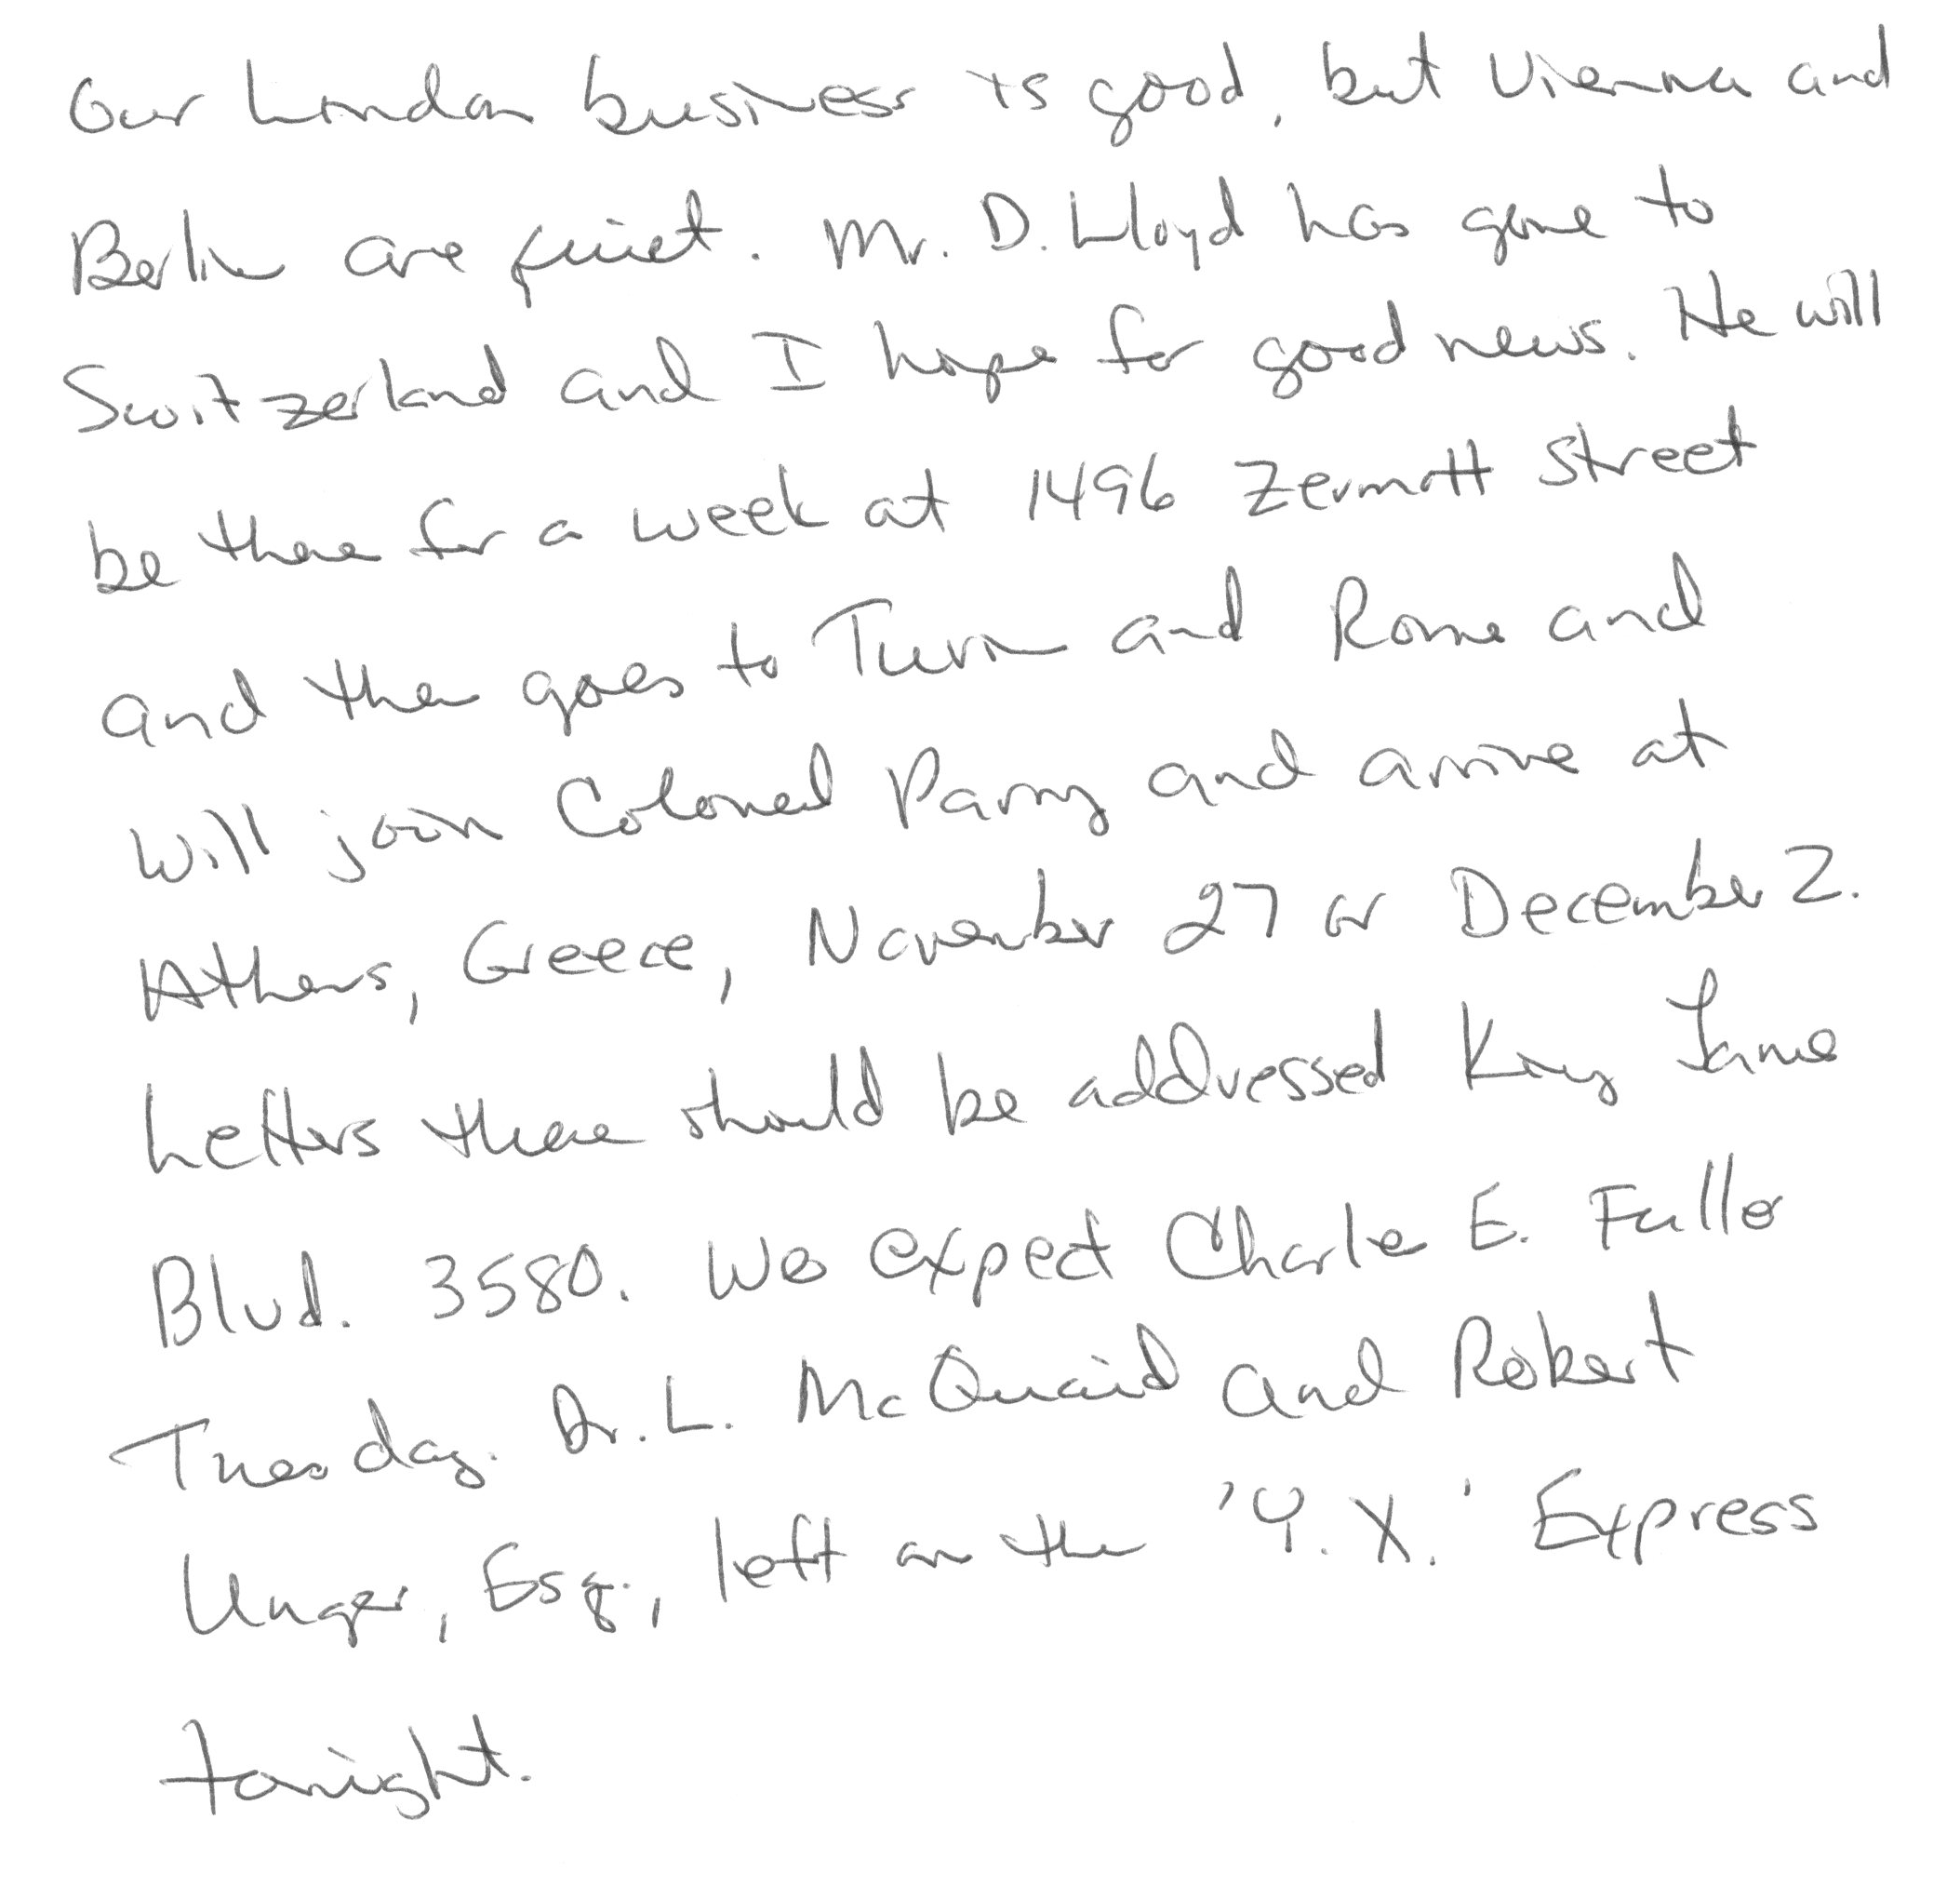 Our London business is good, but Vienna and
Berlin are quiet. Mr. D. Lloyd has gone to
Switzerland and I hope for good news. He will
be there for a week at 1496 Zermott Street
and then goes to Turin and Rome and
will join Colonel Parry and arrive at
Athens, Greece, November 27 or December 2.
Letters there should be addressed King James
Blvd. 3580. We expect Charles E. Fuller
Tuesday. Dr. L. McQuaid and Robert
Unger, Esq., left on the 'Y. X.' Express
tonight.